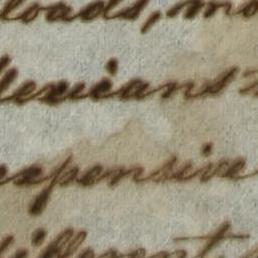 loads, mo
Mexicans
expensive
different